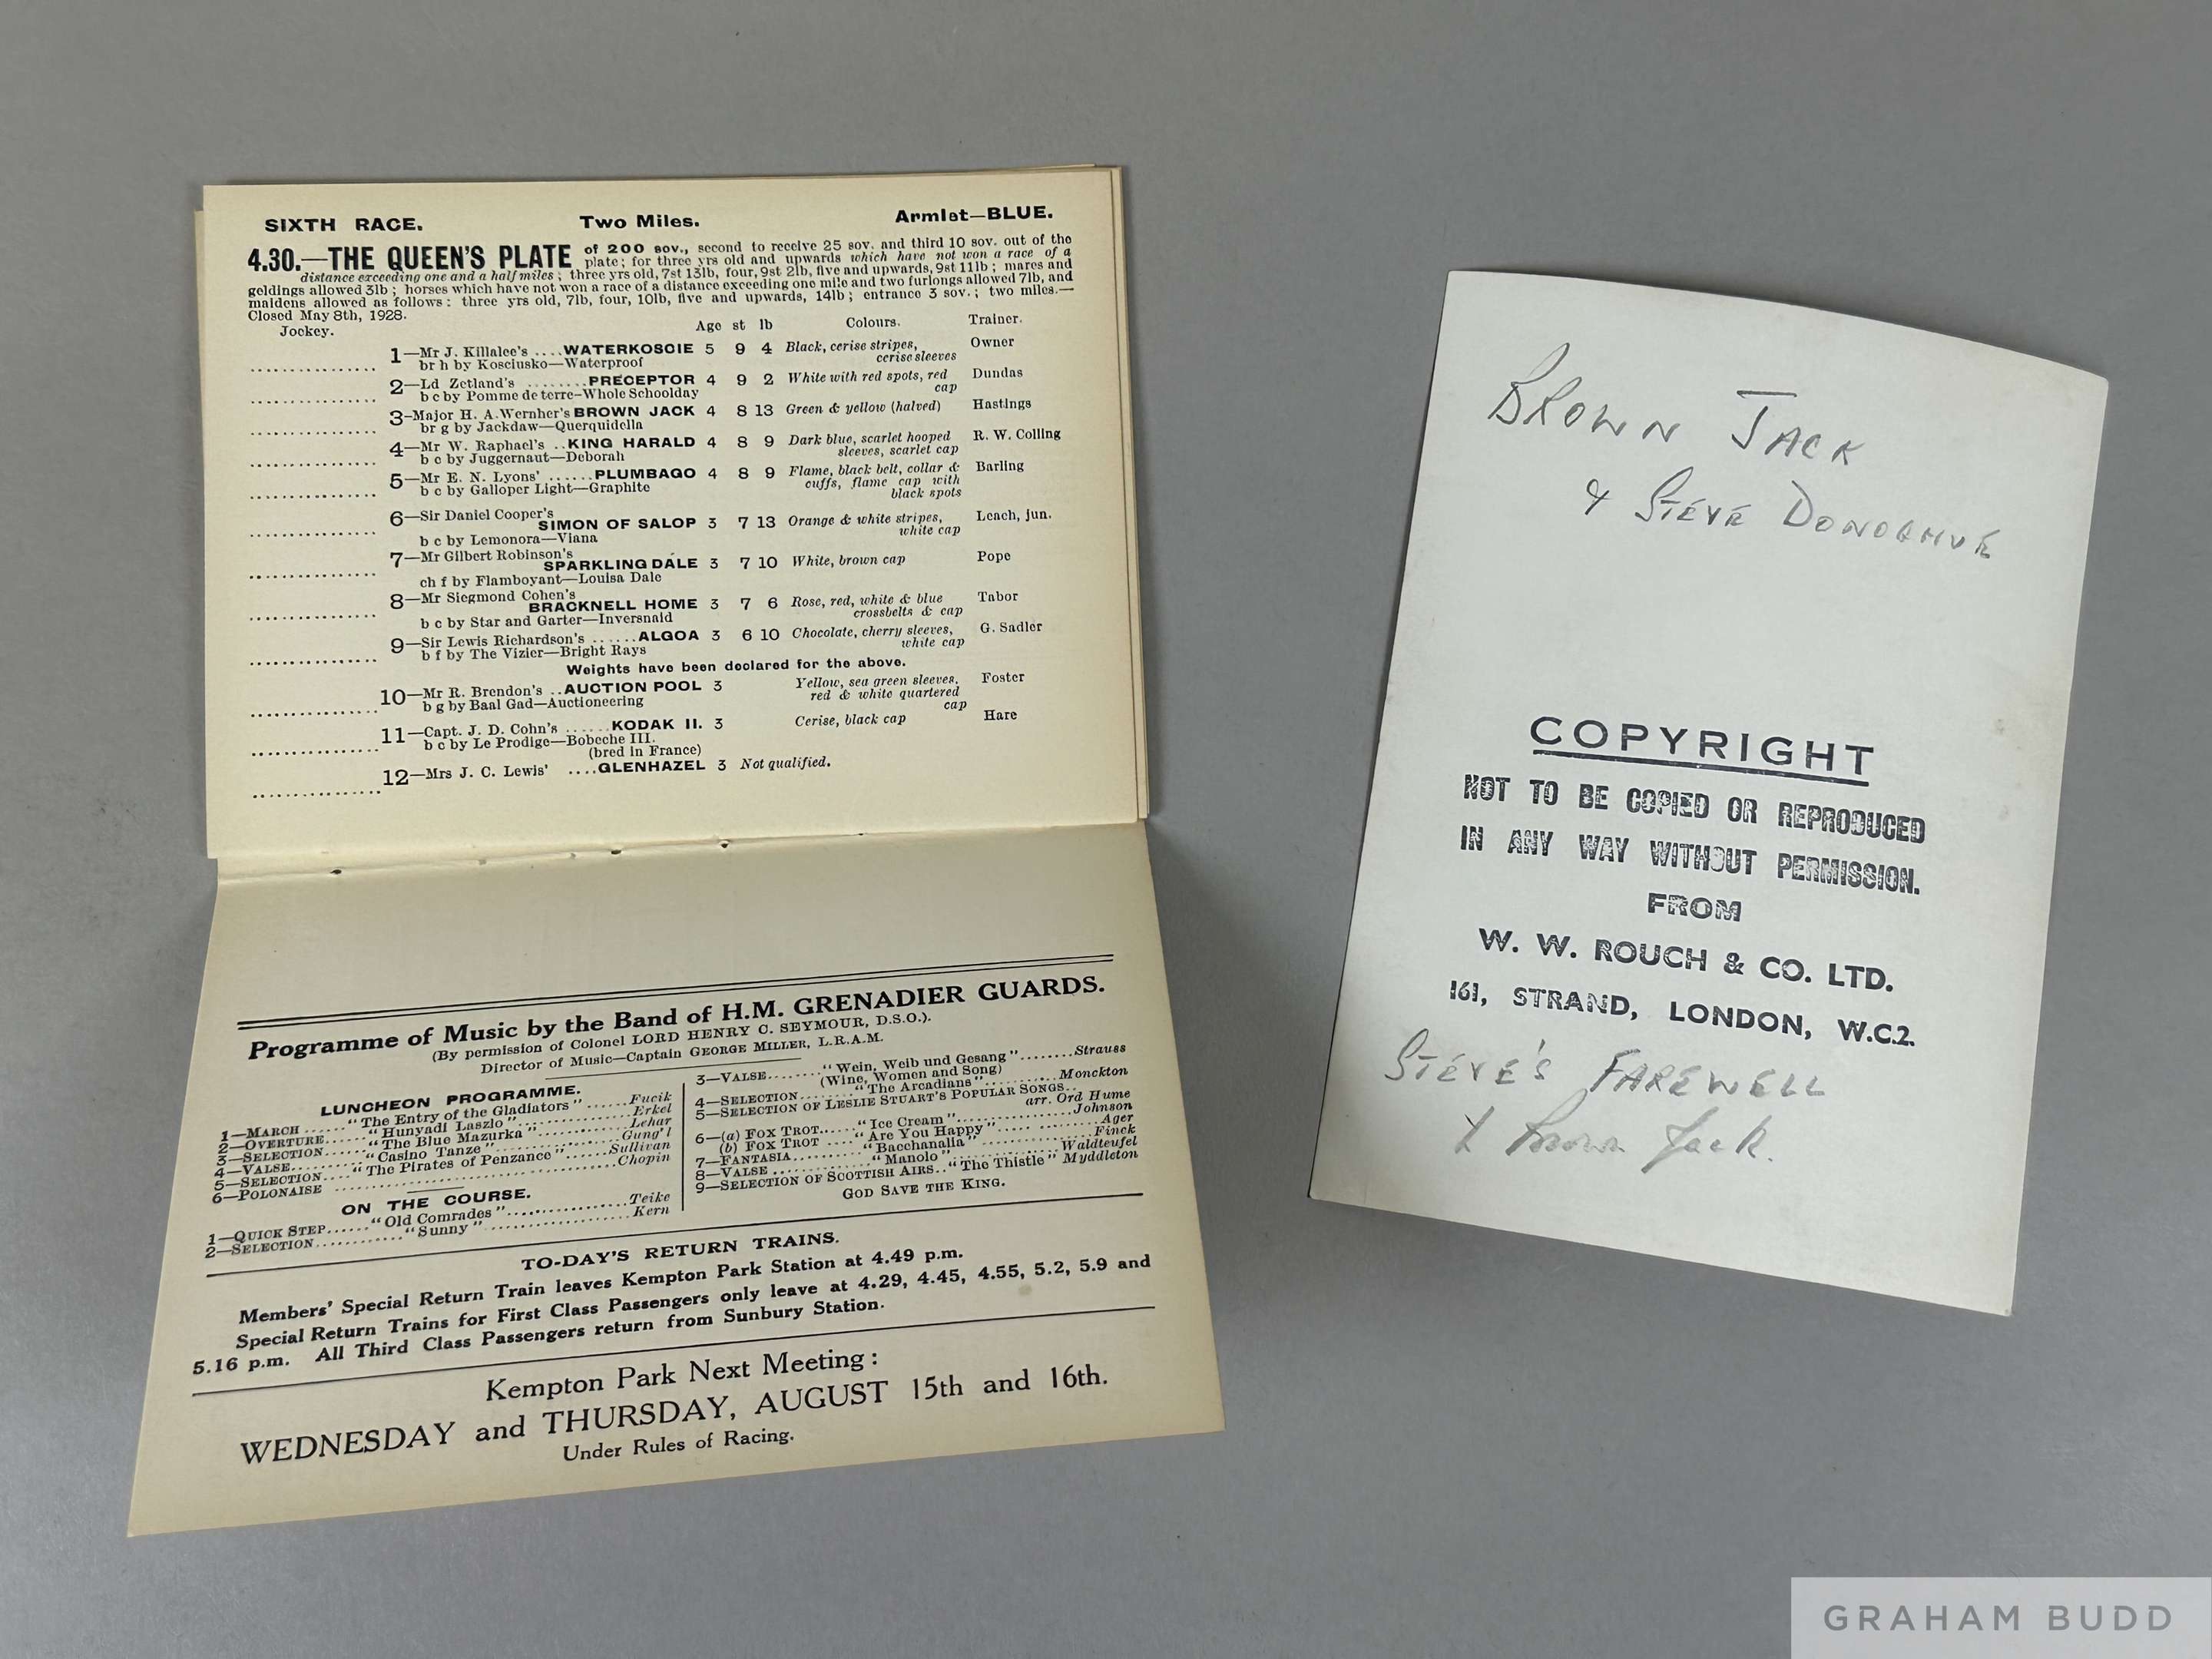 SIXTH RACE. Two Miles. Armlet—BLUE.
4.30.—THE QUEEN'S PLATE of 200 sov., second to receive 25 sov. and third 10 sov. out of the
plate; for three yrs old and upwards which have not won a race of a
distance exceeding one and a half miles; three yrs old, 7st 13lb, four, 9st 2lb, five and upwards, 9st 11lb; mares and
geldings allowed 3lb; horses which have not won a race of a distance exceeding one mile and two furlongs allowed 7lb, and
maidens allowed as follows: three yrs old, 7lb, four, 10lb, five and upwards, 14lb; entrance 3 sov.; two miles.—
Closed May 8th, 1928.
Jockey. Age st lb Colours. Trainer.
1—Mr J. Killalee's ....WATERKOSCIE 5 9 4 Black, cerise stripes, Owner
br h by Kosciusko—Waterproof cerise sleeves
2—Ld Zetland's ........PRECEPTOR 4 9 2 White with red spots, red Dundas
b c by Pomme de terre—Whole Schoolday cap
3—Major H. A. Wernher's BROWN JACK 4 8 13 Green & yellow (halved) Hastings
br g by Jackdaw—Querquidella
4—Mr W. Raphael's ..KING HARALD 4 8 9 Dark blue, scarlet hooped R. W. Colling
b c by Juggernaut—Deborah sleeves, scarlet cap
5—Mr E. N. Lyons' ......PLUMBAGO 4 8 9 Flame, black belt, collar & Barling
b c by Galloper Light—Graphite cuffs, flame cap with
black spots
6—Sir Daniel Cooper's
SIMON OF SALOP 3 7 13 Orange & white stripes, Leach, jun.
b c by Lemonora—Viana white cap
7—Mr Gilbert Robinson's
SPARKLING DALE 3 7 10 White, brown cap Pope
ch f by Flamboyant—Louisa Dale
8—Mr Siegmond Cohen's
BRACKNELL HOME 3 7 6 Rose, red, white & blue Tabor
b c by Star and Garter—Inversnaid crossbelts & cap
9—Sir Lewis Richardson's ......ALGOA 3 6 10 Chocolate, cherry sleeves, G. Sadler
b f by The Vizier—Bright Rays white cap
Weights have been declared for the above.
10—Mr R. Brendon's ..AUCTION POOL 3 Yellow, sea green sleeves, Foster
b g by Baal Gad—Auctioneering red & white quartered
cap
11—Capt. J. D. Cohn's ......KODAK II. 3 Cerise, black cap Hare
b c by Le Prodige—Bobeche III.
(bred in France)
12—Mrs J. C. Lewis' ....GLENHAZEL 3 Not qualified.
Programme of Music by the Band of H.M. GRENADIER GUARDS.
(By permission of Colonel LORD HENRY C. SEYMOUR, D.S.O.).
Director of Music—Captain GEORGE MILLER, L.R.A.M.
LUNCHEON PROGRAMME.
1—MARCH ......"The Entry of the Gladiators"......Fucik
2—OVERTURE......"Hunyadi Laszlo"............Erkel
3—SELECTION......"The Blue Mazurka"............Lehar
4—VALSE........."Casino Tanze"............Gung'l
5—SELECTION...."The Pirates of Penzance".......Sullivan
6—POLONAISE ............Chopin
ON THE COURSE.
1—QUICK STEP......"Old Comrades"............Teike
2—SELECTION............"Sunny"............Kern
3—VALSE........"Wein, Weib und Gesang"........Strauss
(Wine, Women and Song)
4—SELECTION........."The Arcadians"..........Monckton
5—SELECTION OF LESLIE STUART'S POPULAR SONGS..
arr. Ord Hume
6—(a) FOX TROT......"Ice Cream"............Johnson
(b) FOX TROT ...."Are You Happy"............Ager
7—FANTASIA..........."Bacchanalia"............Finck
8—VALSE ............"Manolo"............Waldteufel
9—SELECTION OF SCOTTISH AIRS.."The Thistle" Myddleton
GOD SAVE THE KING.
TO-DAY'S RETURN TRAINS.
Members' Special Return Train leaves Kempton Park Station at 4.49 p.m.
Special Return Trains for First Class Passengers only leave at 4.29, 4.45, 4.55, 5.2, 5.9 and
5.16 p.m. All Third Class Passengers return from Sunbury Station.
Kempton Park Next Meeting:
WEDNESDAY and THURSDAY, AUGUST 15th and 16th.
Under Rules of Racing.
BROWN JACK
& STEVE DONOGHUE
COPYRIGHT
NOT TO BE COPIED OR REPRODUCED
IN ANY WAY WITHOUT PERMISSION.
FROM
W. W. ROUCH & CO. LTD.
161, STRAND, LONDON, W.C.2.
STEVE'S FAREWELL
& Brown Jack.
GRAHAM BUDD